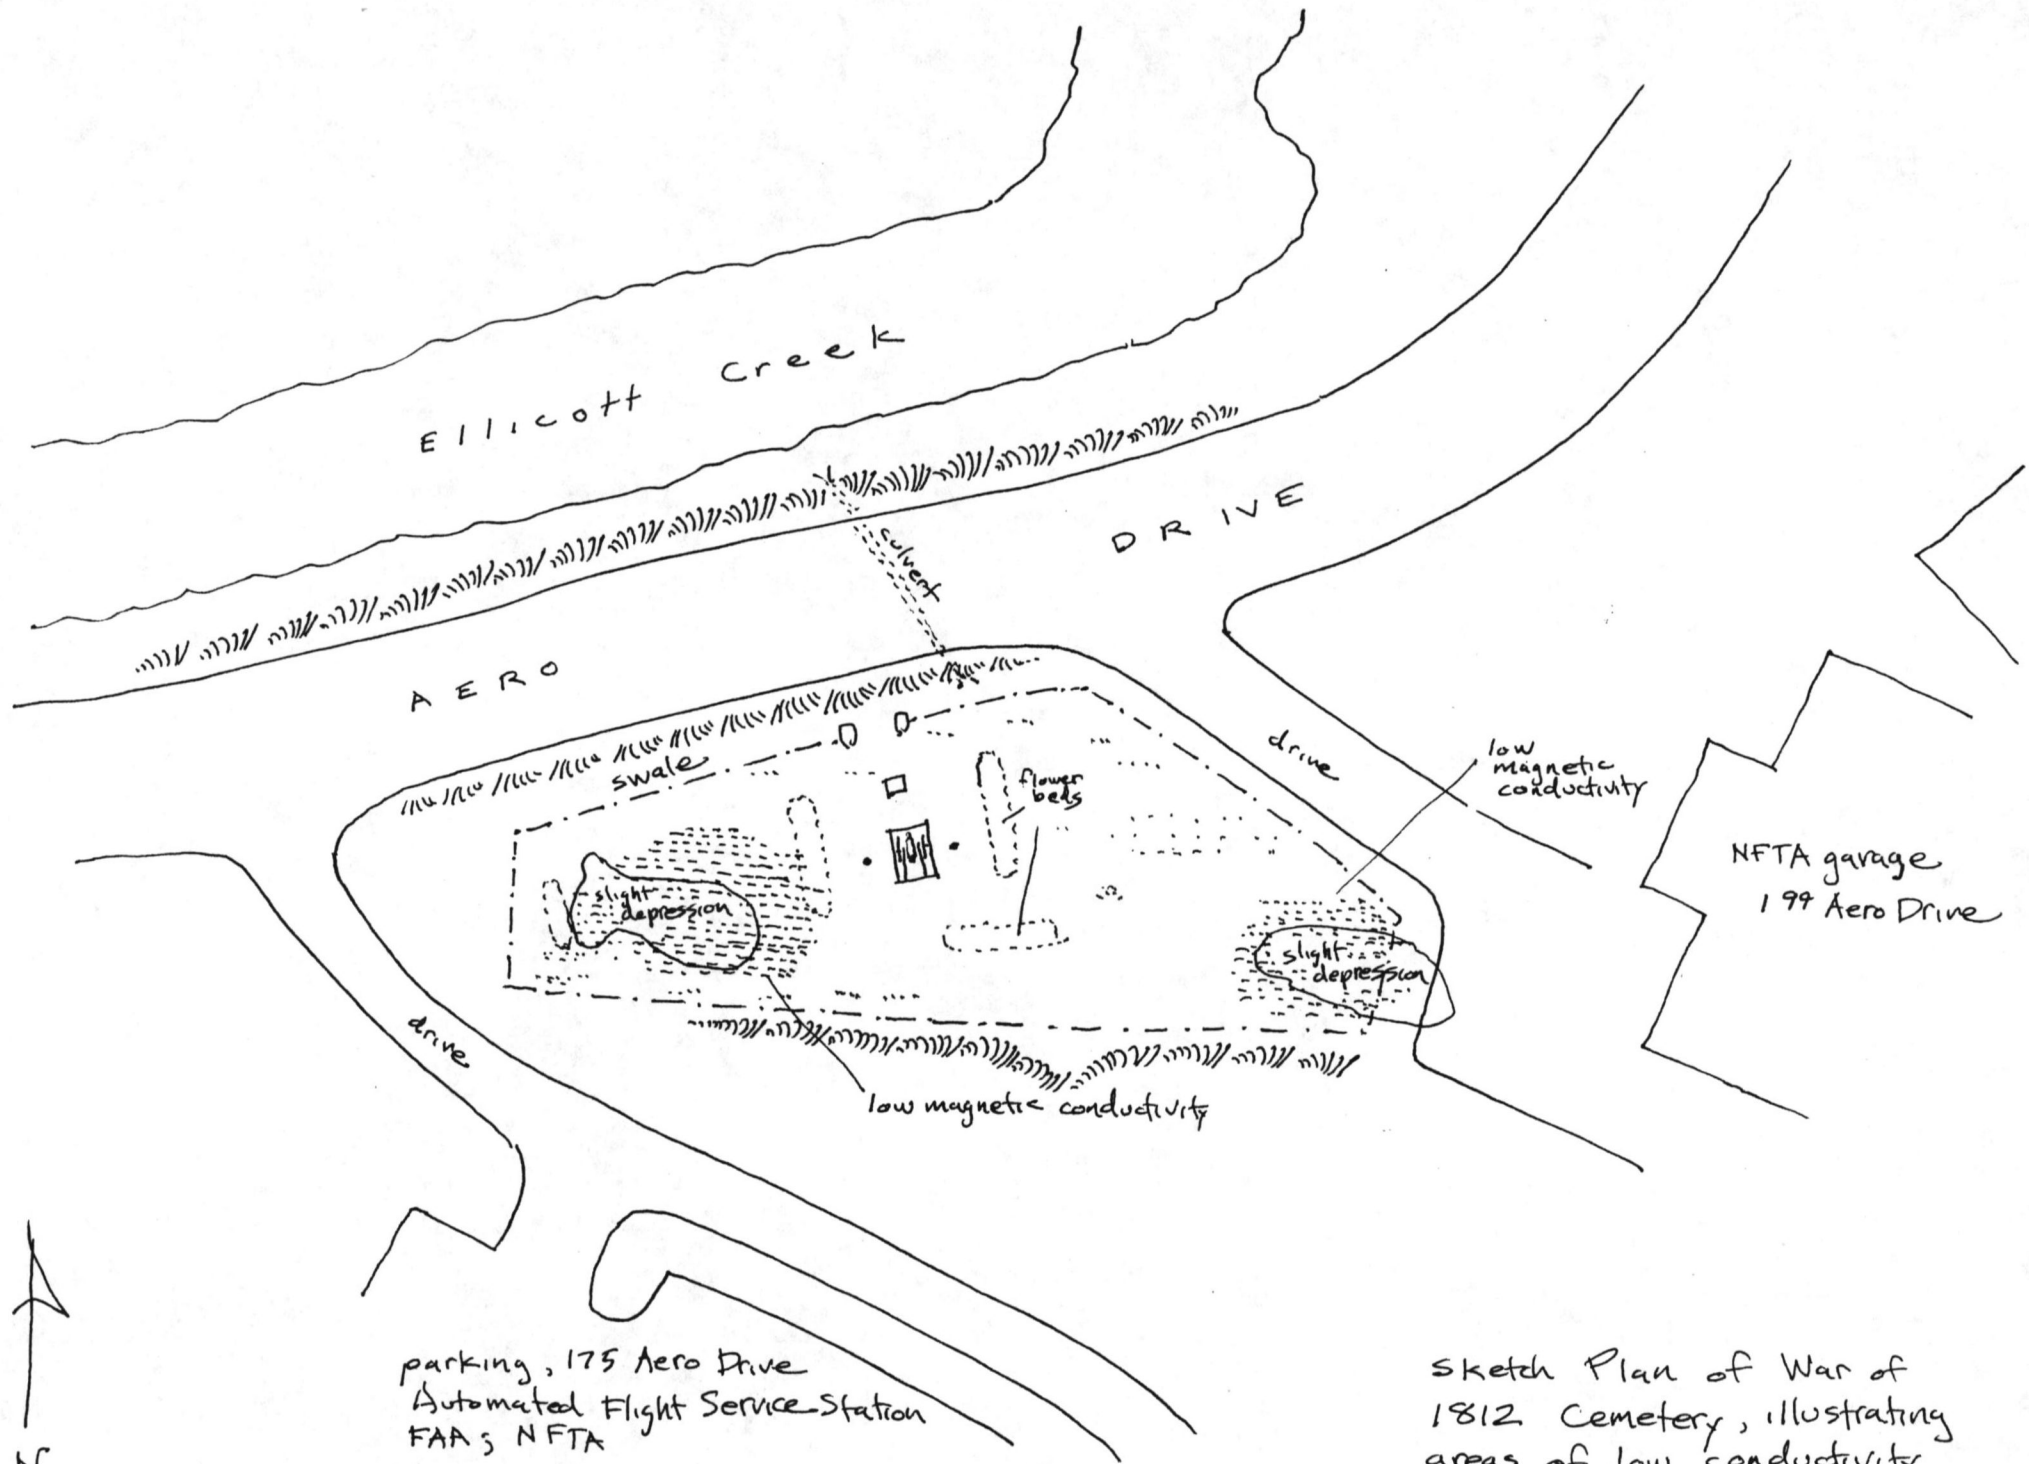 Ellicott Creek
culvert
AERO DRIVE
swale
flower
beds
drive
low
magnetic
conductivity
slight
depression
slight
depression
NFTA garage
199 Aero Drive
drive
low magnetic conductivity
parking, 175 Aero Drive
Automated Flight Service Station
FAA; NFTA
N
Sketch Plan of War of
1812 Cemetery, illustrating
areas of low conductivity